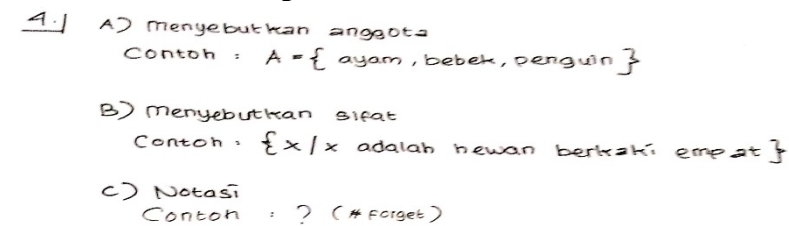 4.) A) menyebutkan anggota
Contoh : A = { ayam, bebek, penguin }
B) menyebutkan sifat
Contoh : {x/x adalah hewan berkaki empat}
C) Notasi
Contoh : ? (# Forget)